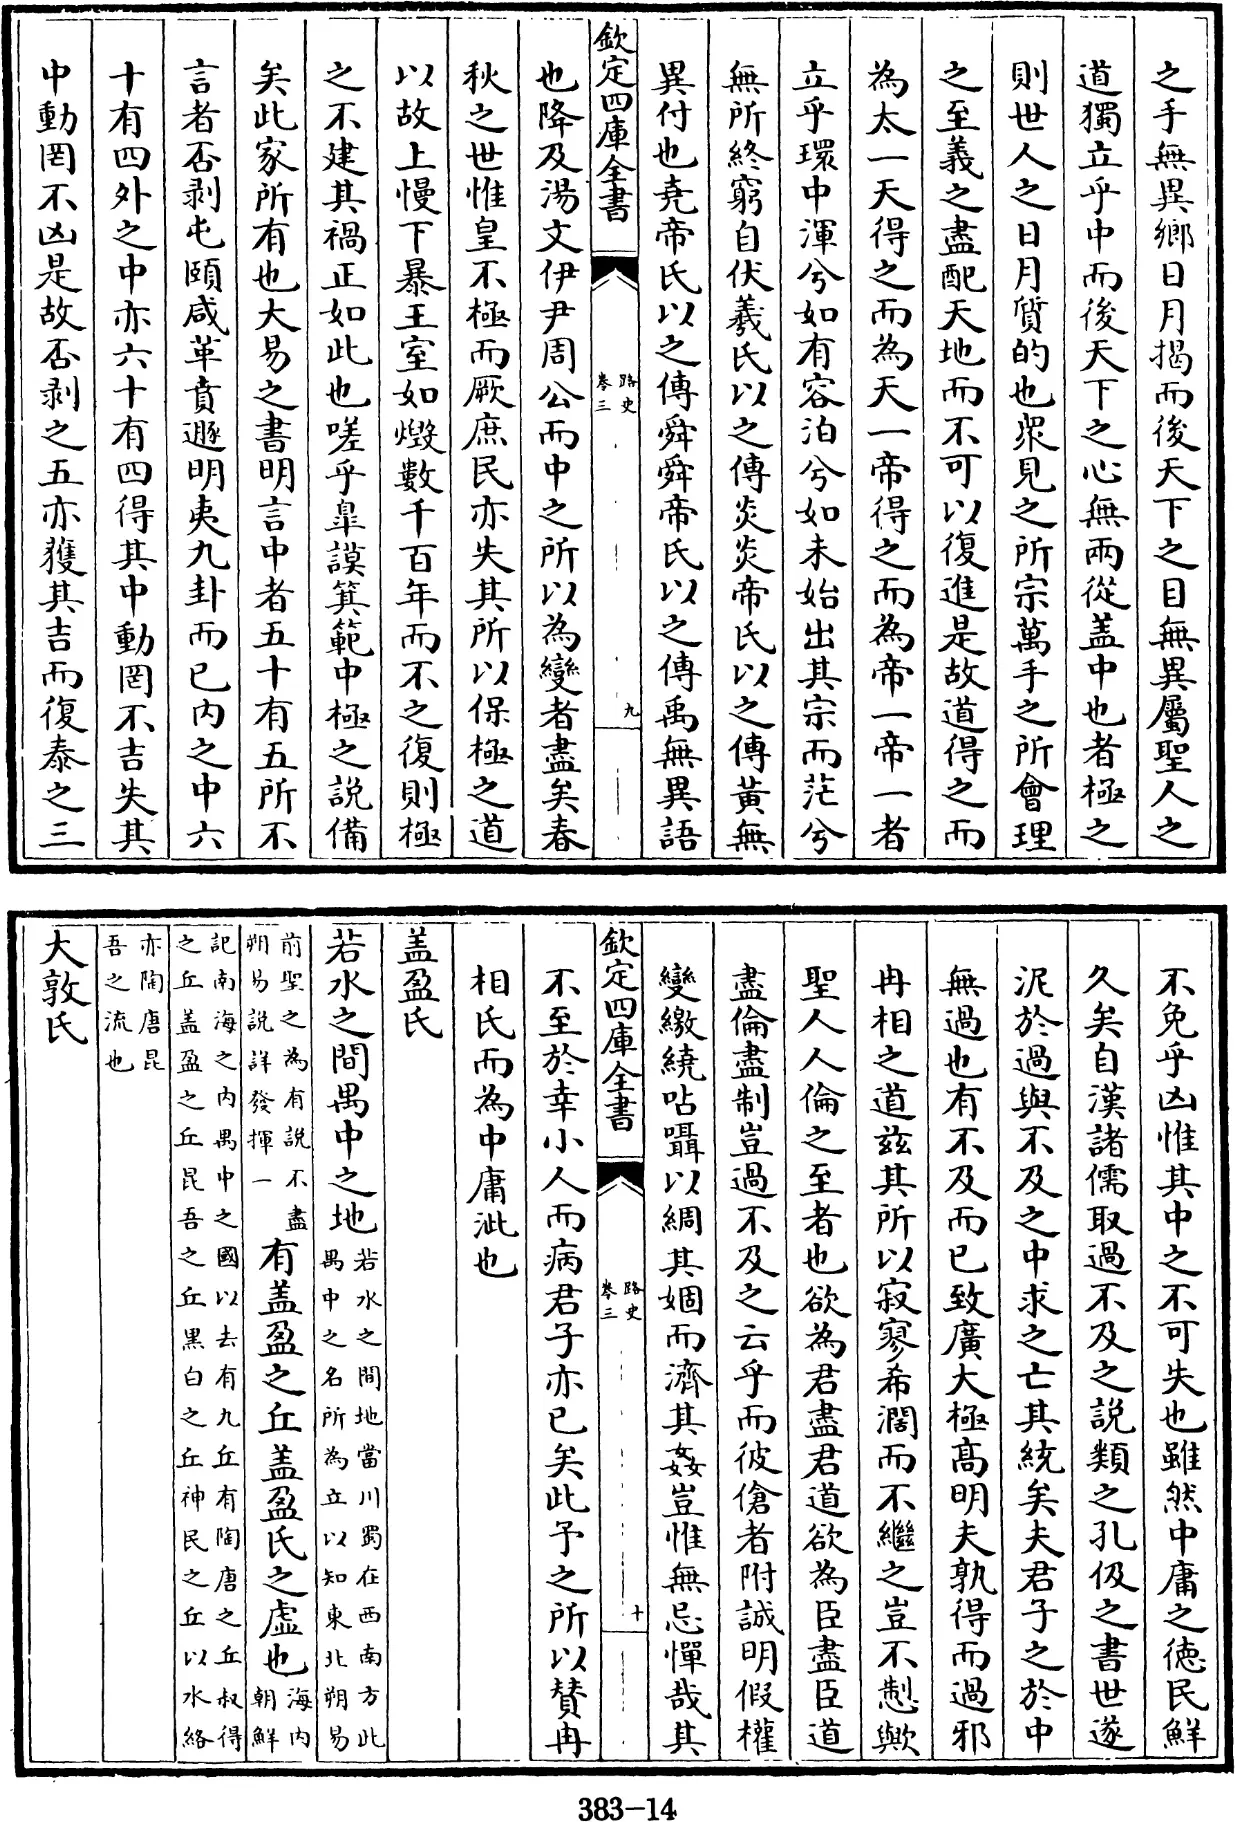 之手無異鄉日月揭而後天下之目無異屬聖人之
道獨立乎中而後天下之心無兩從盖中也者極之
則世人之日月質的也衆見之所宗萬手之所會理
之至義之盡配天地而不可以復進是故道得之而
為太一天得之而為天一帝得之而為帝一帝一者
立乎環中渾兮如有容泊兮如未始出其宗而茫兮
無所終窮自伏羲氏以之傳炎炎帝氏以之傳黃無
異付也堯帝氏以之傳舜舜帝氏以之傳禹無異語
欽定四庫全書
路史
卷三
九
也降及湯文伊尹周公而中之所以為變者盡矣春
秋之世惟皇不極而厥庶民亦失其所以保極之道
以故上慢下暴王室如燬數千百年而不之復則極
之不建其禍正如此也嗟乎臯謨箕範中極之説備
矣此家所有也大易之書明言中者五十有五所不
言者否剥屯頤咸革賁遯明夷九卦而已内之中六
十有四外之中亦六十有四得其中動罔不吉失其
中動罔不凶是故否剥之五亦獲其吉而復泰之三
不免乎凶惟其中之不可失也雖然中庸之德民鮮
久矣自漢諸儒取過不及之説類之孔伋之書世遂
泥於過與不及之中求之亡其統矣夫君子之於中
無過也有不及而已致廣大極高明夫孰得而過邪
冉相之道兹其所以寂寥希濶而不繼之豈不懟歟
聖人人倫之至者也欲為君盡君道欲為臣盡臣道
盡倫盡制豈過不及之云乎而彼傖者附誠明假權
變繳繞呫囁以綢其婟而濟其姦豈惟無忌憚哉其
欽定四庫全書
路史
卷三
十
不至於幸小人而病君子亦已矣此予之所以賛冉
相氏而為中庸泚也
盖盈氏
若水之間禺中之地若水之間地當川蜀在西南方此
禺中之名所為立以知東北朔易
前聖之為有説不盡
朔易説詳發揮一
有盖盈之丘盖盈氏之虚也海内
朝鮮
記南海之内禺中之國以去有九丘有陶唐之丘叔得
之丘盖盈之丘昆吾之丘黒白之丘神民之丘以水絡
亦陶唐昆
吾之流也
大敦氏
383-14